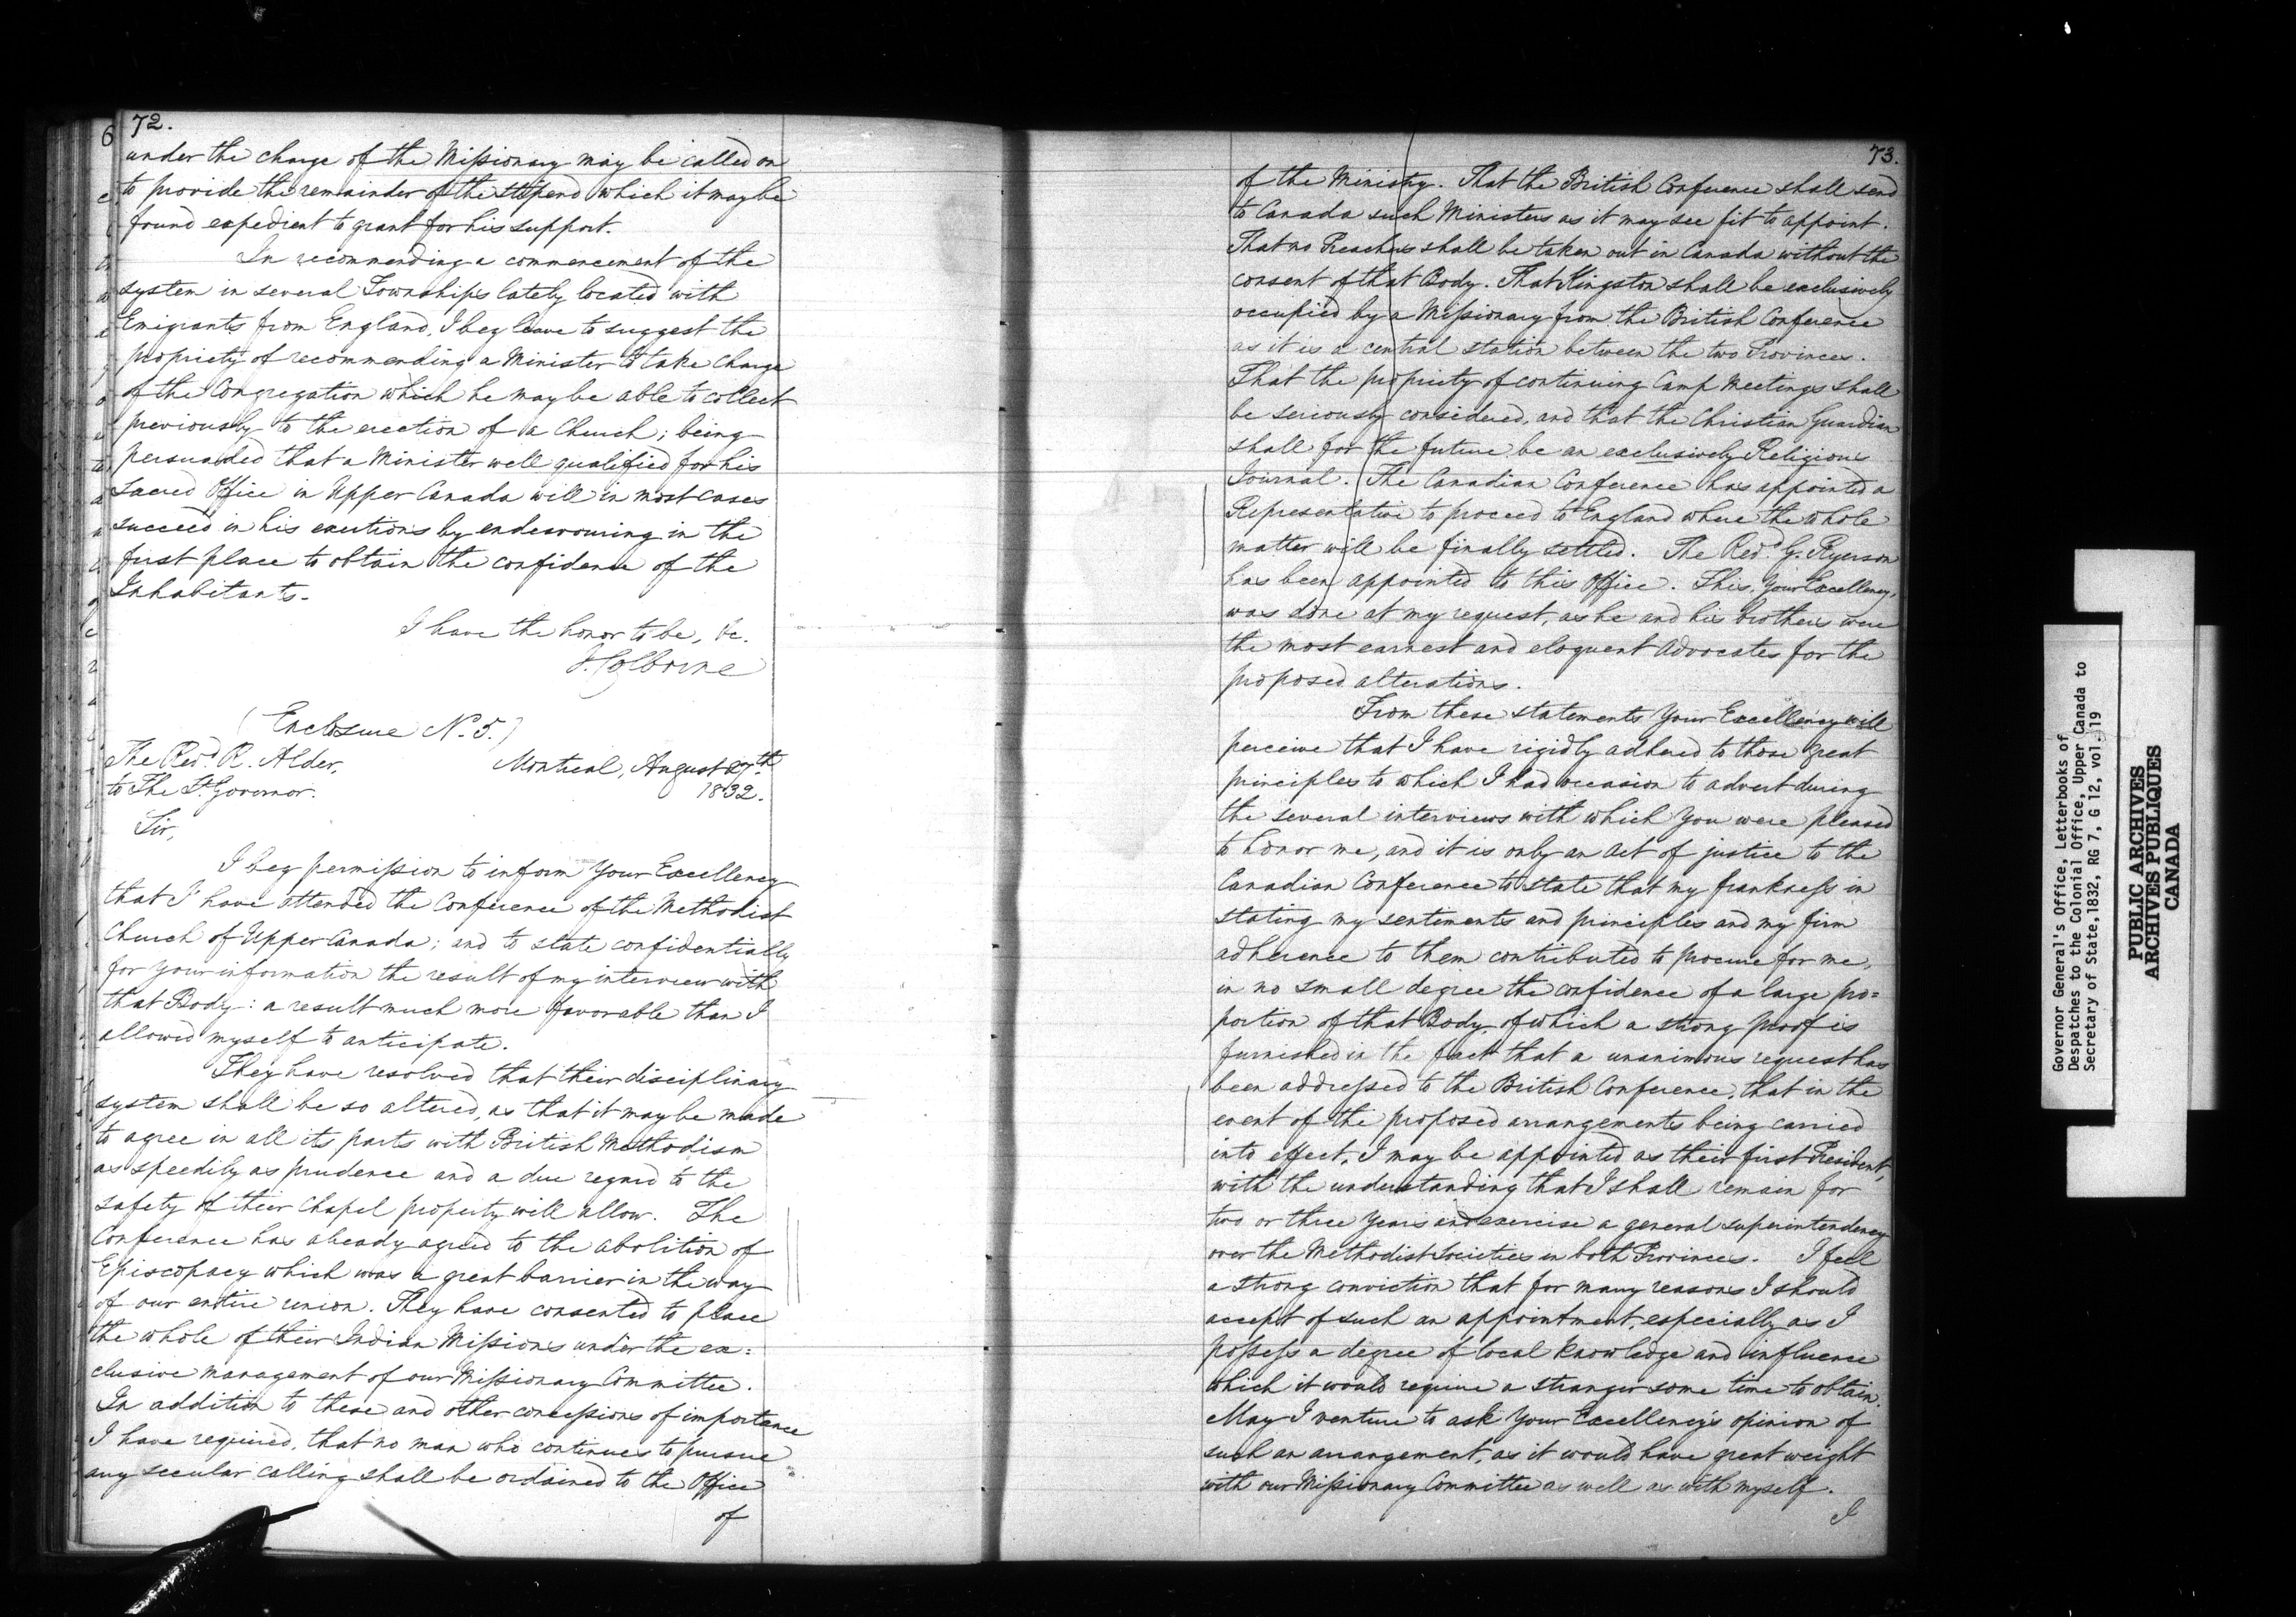 72.
under the charge of the Missionary may be called on
to provide the remainder of the stipend which it may be
found expedient to grant for his support.
In recommending a commencement of the
system in several Townships lately located with
Emigrants from England, I beg leave to suggest the
propriety of recommending a Minister to take charge
of the Congregation which he may be able to collect
previously to the erection of a Church; being
persuaded that a Minister well qualified for his
Sacred Office in Upper Canada will in most cases
succeed in his exertions by endeavouring in the
first place to obtain the confidence of the
Inhabitants.
I have the honor to be, &c.
J. Colborne
(Enclosure No. 5.)
The Revd. R. Alder, Montreal, August 27th
to The Lt. Governor. 1832.
Sir,
I beg permission to inform Your Excellency
that I have attended the Conference of the Methodist
Church of Upper Canada; and to state confidentially
for Your information the result of my interview with
that Body: a result much more favorable than I
allowed myself to anticipate.
They have resolved that their disciplinary
system shall be so altered, as that it may be made
to agree in all its parts with British Methodism
as speedily as prudence and a due regard to the
safety of their Chapel property will allow. The
Conference has already agreed to the abolition of
Episcopacy which was a great barrier in the way
of our entire union. They have consented to place
the whole of their Indian Missions under the ex=
clusive management of our Missionary Committee.
In addition to these and other concessions of importance
I have required, that no man who continues to pursue
any secular calling shall be ordained to the Office
of
73.
of the Ministry. That the British Conference shall send
to Canada such Ministers as it may see fit to appoint.
That no Preachers shall be taken out in Canada without the
consent of that Body. That Kingston shall be exclusively
occupied by a Missionary from the British Conference
as it is a central station between the two Provinces.
That the propriety of continuing Camp Meetings shall
be seriously considered, and that the Christian Guardian
shall for the future be an exclusively Religious
Journal. The Canadian Conference has appointed a
Representative to proceed to England where the whole
matter will be finally settled. The Revd. G. Ryerson
has been appointed to this Office. This, Your Excellency,
was done at my request, as he and his brothers were
the most earnest and eloquent advocates for the
proposed alterations.
From these statements Your Excellency will
perceive that I have rigidly adhered to those great
principles to which I had occasion to advert during
the several interviews with which You were pleased
to honor me, and it is only an act of justice to the
Canadian Conference to state that my frankness in
stating my sentiments and principles and my firm
adherence to them contributed to procure for me,
in no small degree the confidence of a large pro=
portion of that Body, of which a strong proof is
furnished in the fact that a unanimous request has
been addressed to the British Conference, that in the
event of the proposed arrangements being carried
into effect, I may be appointed as their first President,
with the understanding that I shall remain for
two or three Years and exercise a general superintendency
over the Methodist Societies in both Provinces. I feel
a strong conviction that for many reasons I should
accept of such an appointment, especially as I
possess a degree of local knowledge and influence
which it would require a stranger some time to obtain.
May I venture to ask Your Excellency's opinion of
such an arrangement, as it would have great weight
with our Missionary Committee as well as with myself.
I
Governor General's Office, Letterbooks of
Despatches to the Colonial Office, Upper Canada to
Secretary of State, 1832, RG 7, G 12, vol. 19
PUBLIC ARCHIVES
ARCHIVES PUBLIQUES
CANADA